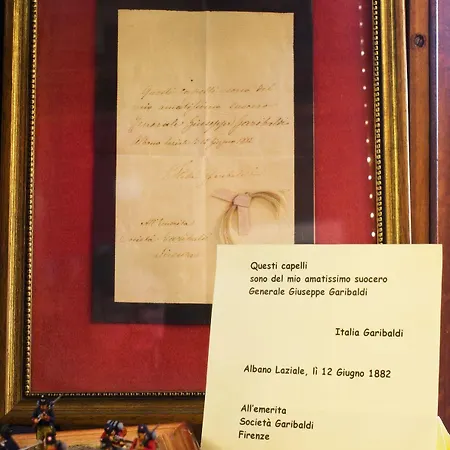 Questi capelli sono del
mio amatissimo suocero
Generale Giuseppe Garibaldi
Albano Laziale, lì 12 Giugno 1882
Italia Garibaldi
All'emerita
Società Garibaldi
Firenze
Questi capelli
sono del mio amatissimo suocero
Generale Giuseppe Garibaldi
Italia Garibaldi
Albano Laziale, lì 12 Giugno 1882
All'emerita
Società Garibaldi
Firenze